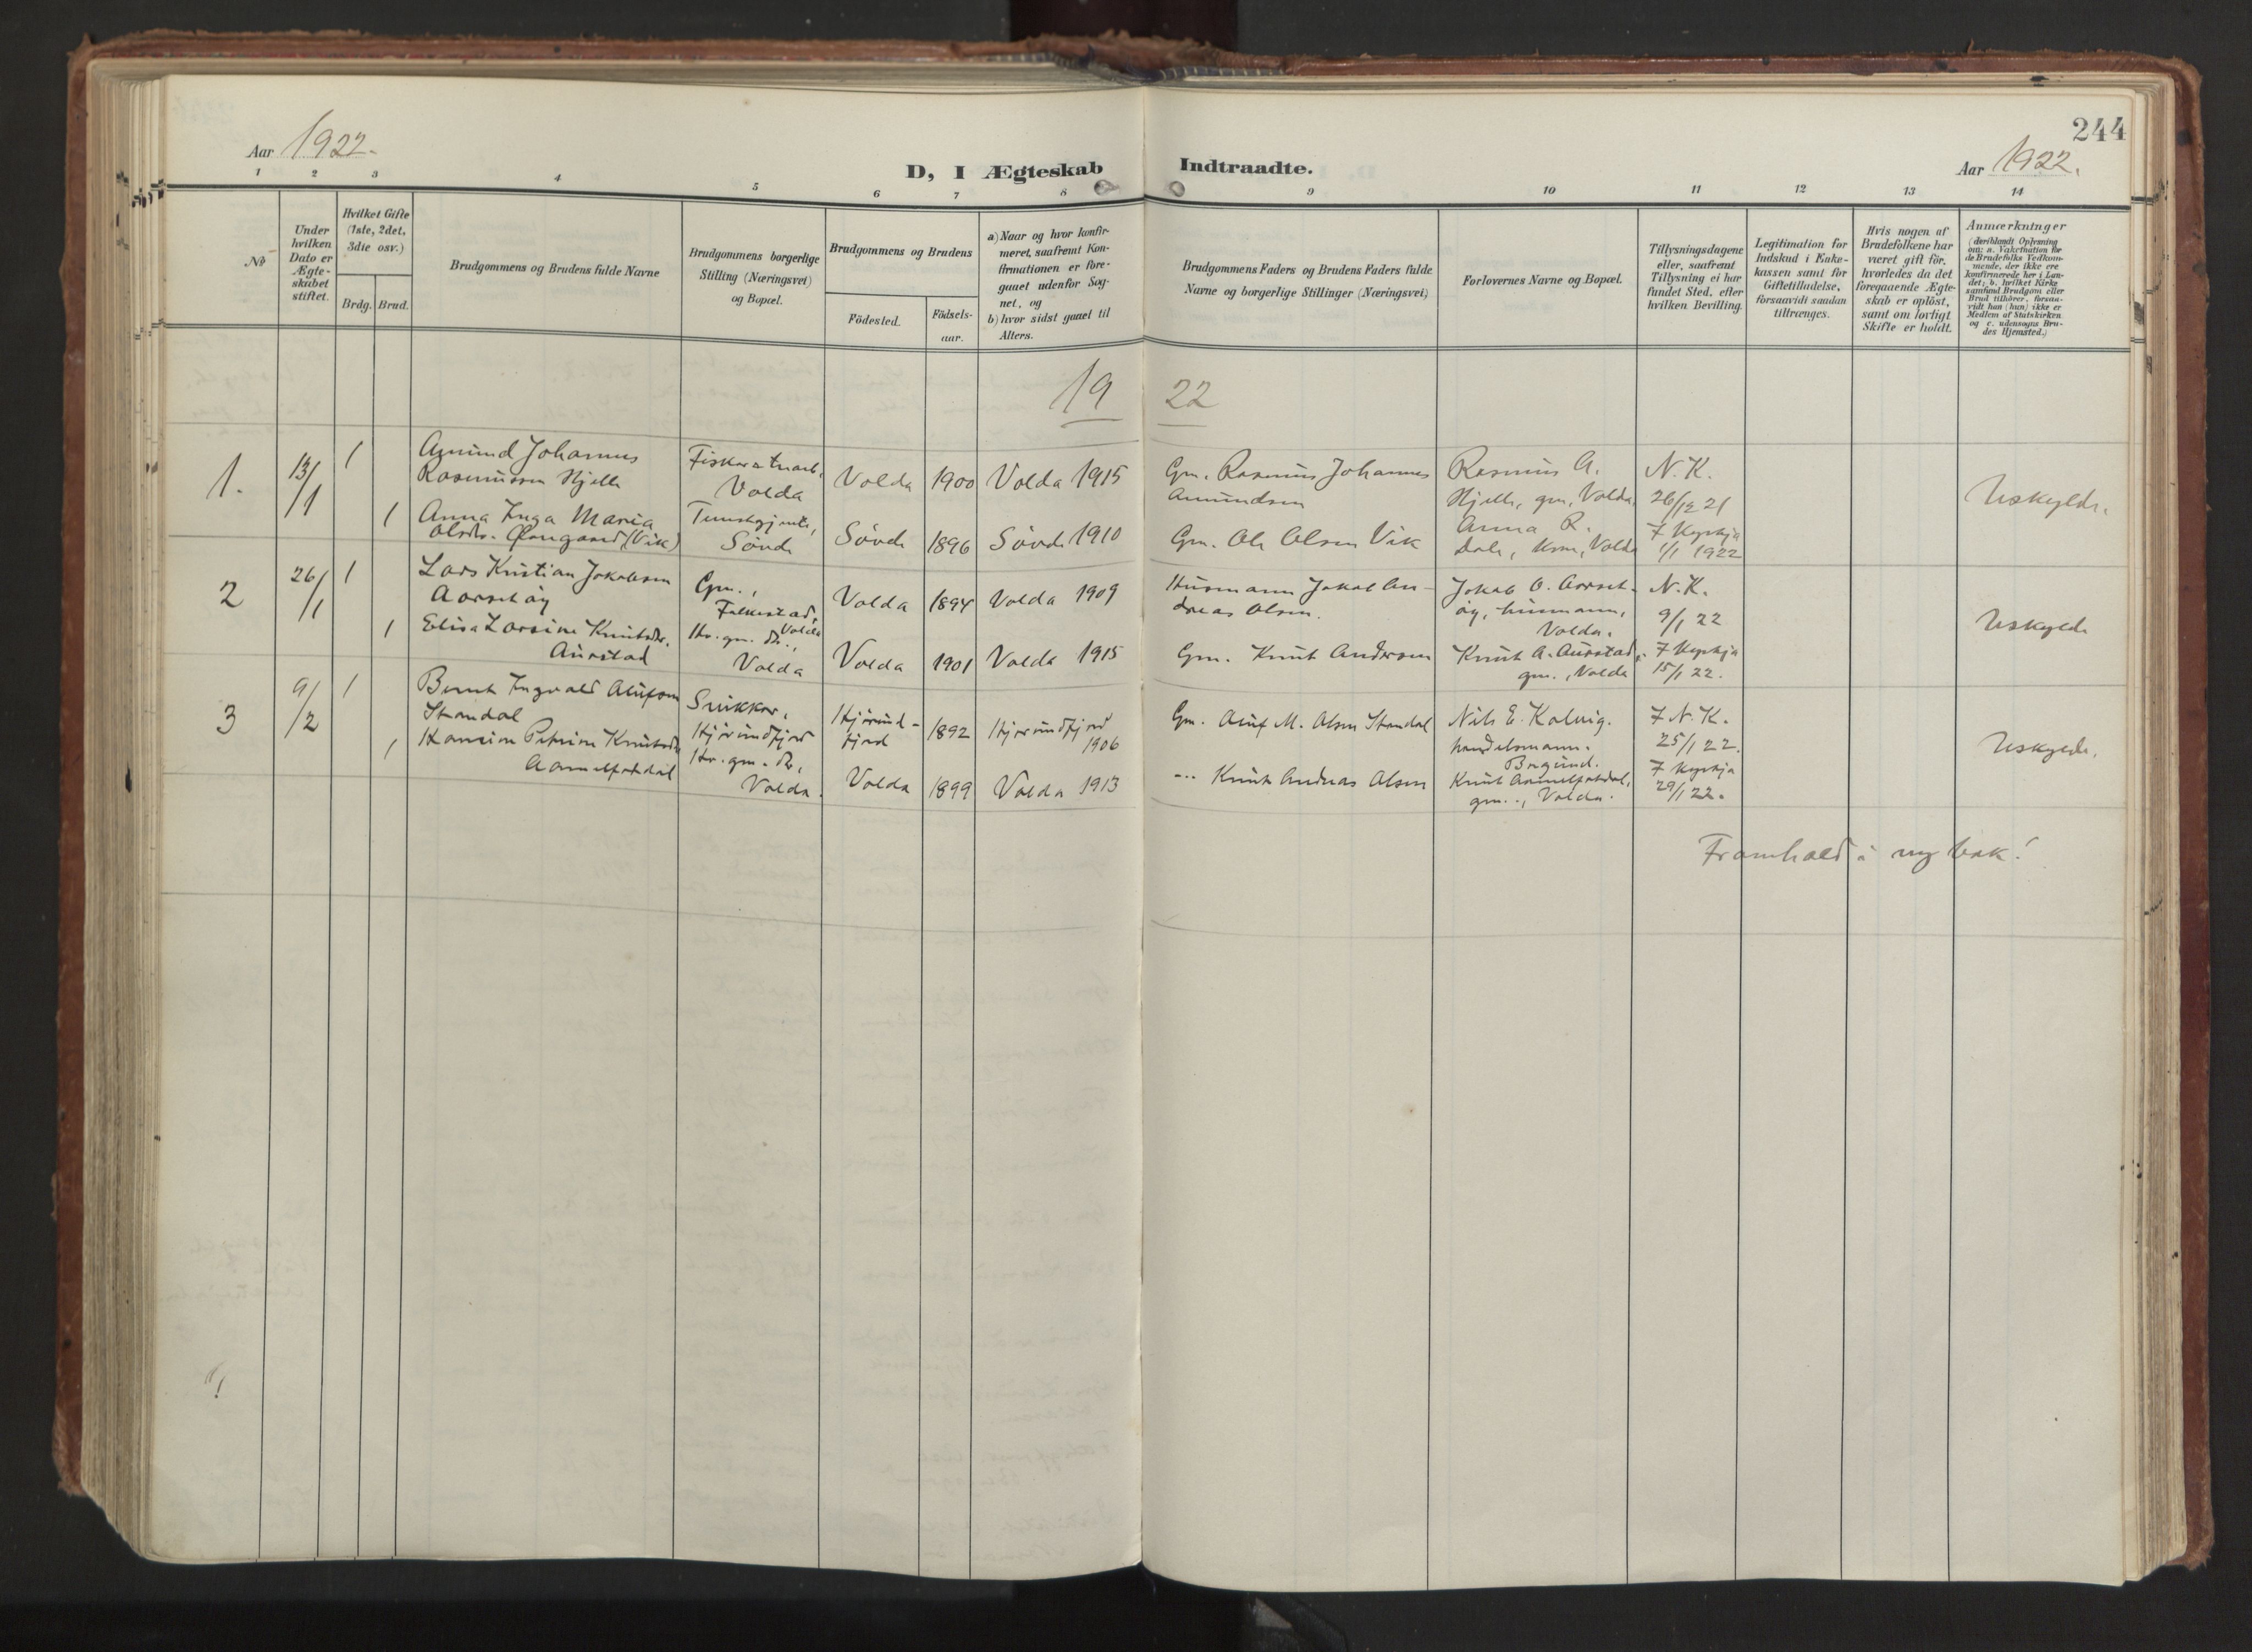 244
Aar 1922.
Aar 1922.
D, I Ægteskab Indtraadte.
1 2 3 4 5 6 7 8 9 10 11 12 13 14
No
Under
hvilken
Dato er
Ægte-
skabet
stiftet.
Hvilket Gifte
(1ste, 2det,
3die osv.)
Brdg. Brud.
Brudgommens og Brudens fulde Navne
Brudgommens borgerlige
Stilling (Næringsvei)
og Bopæl.
Brudgommens og Brudens
Födested.
Födsels-
aar.
a) Naar og hvor konfir-
meret, saafremt Kon-
firmationen er fore-
gaaet udenfor Sog-
net, og
b) hvor sidst gaaet til
Alters.
Brudgommens Faders og Brudens Faders fulde
Navne og borgerlige Stillinger (Næringsvei)
Forlovernes Navne og Bopæl.
Tillysningsdagene
eller, saafremt
Tillysning ei har
fundet Sted, efter
hvilken Bevilling.
Legitimation for
Indskud i Enke-
kassen samt for
Giftetilladelse,
forsaavidt saadan
tiltrænges.
Hvis nogen af
Brudefolkene har
været gift för,
hvorledes da det
foregaaende Ægte-
skab er oplöst,
samt om lovligt
Skifte er holdt.
Anmærkninger
(deriblandt Oplysning
om: a. Vakcination for
de Brudefolks Vedkom-
mende, der ikke ere
konfirmerede her i Lan-
det; b. hvilket Kirke-
samfund Brudgom eller
Brud tilhörer, forsaa-
vidt han (hun) ikke er
Medlem af Statskirken
og c. udensogns Bru-
des Hjemsted.)
19 22
1.
13/1
1
Amund Johannes
Rasmussen Hjelle
Volda
Volda
1900
Volda 1915
Gm. Rasmus Johannes
Amundsen
Rasmus A.
Hjelle, gm, Volda.
N. K.
26/12 21
Uskylde.
1
Anna Inga Maria
Olsdtr. Øvregaard (Vik)
Sövde
Sövde
1896
Sövde 1910
Gm. Ole Olsen Vik
Anna R.
Dale, Kone, Volda
7 Kyrkja
1/1 1922
2
26/1
1
Lars Kristian Jakobsen
Aarsetöy
Gm.,
Folkestad,
Volda
Volda
1894
Volda 1909
Husmann Jakob An-
dreas Olsen.
Jakob O. Aarset-
öy, husmann,
Volda.
N. K.
9/1 22
Uskylde
1
Elisa Larsine Knutsdtr.
Aurstad
Hv. gm. dtr.,
Volda
Volda
1901
Volda 1915
Gm. Knut Andersen
Knut A. Aurstad,
gm., Volda
7 Kyrkja
15/1 22.
3
9/2
1
Bernt Ingvald Alufsen
Standal
Snikkar,
Hjörundfjord
Hjörund-
fjord
1892
Hjörundfjord
1906
Gm. Aluf M. Olsen Standal
Nils E. Kolvig.
handelsmann.
Borgund.
7 N. K.
25/1 22.
Uskylde.
1
Hansine Petrine Knutsdtr
Aamelfotdal
Hv. gm. dtr,
Volda.
Volda
1899
Volda 1913
--- Knut Andreas Olsen
Knut Aamelfotdal,
gm., Volda.
7 Kyrkja
29/1 22.
Framhald i ny bok!